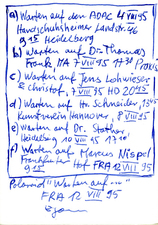 a) Warten auf den ADAC 4 VIII 95
Handschuhsheimer Landstr. 46
9 15 Heidelberg
b) Warten auf Dr. Thomas
Frank HA 7 VIII 95 Praxis
c) Warten auf Jens Lohwieser
& Christof, 7 VIII 95 HD 20
d) Warten auf Hr. Schneider, 13 45
Kunstverein Hannover, 8 VIII 95
e) Warten auf Dr. Stather
Heidelberg 10 VIII 95
f) Warten auf Marcus Nispel
Frankfurter Hof FRA 12 VIII 95
Polaroid "Warten auf..."
FRA 12 VIII 95